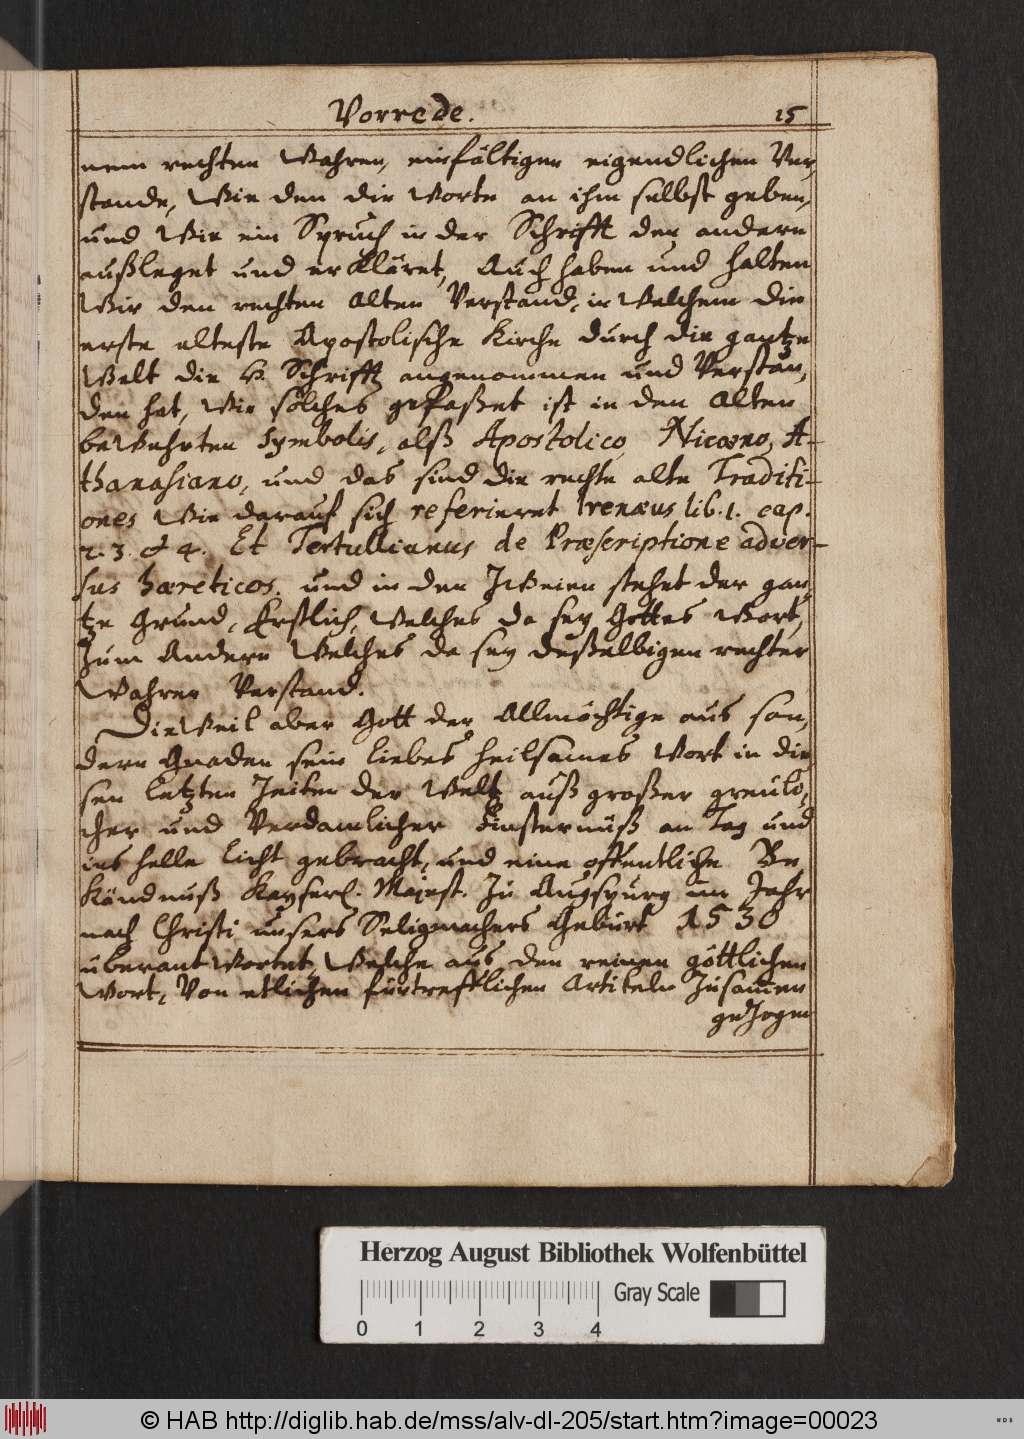 Vorrede. 15
nem rechten Wahren, einfältigen eigendlichen Ver,
stande, Wie den die Worte an ihm selbst geben,
und Wie ein Spruch in der Schrifft den andern
außleget und erkläret, Auch haben und halten
Wir den rechten Alten Verstand, in Welchem die
erste elteste Apostolische Kirche durch die gantze
Welt die H. Schrifft angenommen und Verstan,
den hat, Wie solches gefaßet ist in den Alten
beWehrten Symbolis, alß Apostolico, Nicæno, A-
thanasiano, und das sind die rechte alte Traditi-
ones Wie darauf sich referieret Irenæus lib. 1. cap.
2. 3. & 4. Et Tertullianus de Præscriptione adver-
sus hæreticos. und in den ZWeien stehet der gan,
tze Grund, Erstlich, Welches da sey Gottes Wort,
Zum Andern Welches da sey deßelbigen rechter
Wahrer Verstand.
DieWeil aber Gott der Allmächtige aus son,
dern Gnaden sein liebes heilsames Wort in die
sen letzten Zeiten der Welt auß großer greuli,
cher und Verdamlicher Finsternüß an Tag und
ins helle licht gebracht, und eine offentliche Be,
kändnuß Kayserl. Majest. Zu Augspurg im Jahr
nach Christi unsers Seligmachers Geburt 1530
uberantWortet, Welche aus den reinen göttlichen
Wort, Von etlichen fürtrefflichen Artikeln Zusam̃en
geZogen
Herzog August Bibliothek Wolfenbüttel
Gray Scale
0 1 2 3 4
© HAB http://diglib.hab.de/mss/alv-dl-205/start.htm?image=00023
WDB